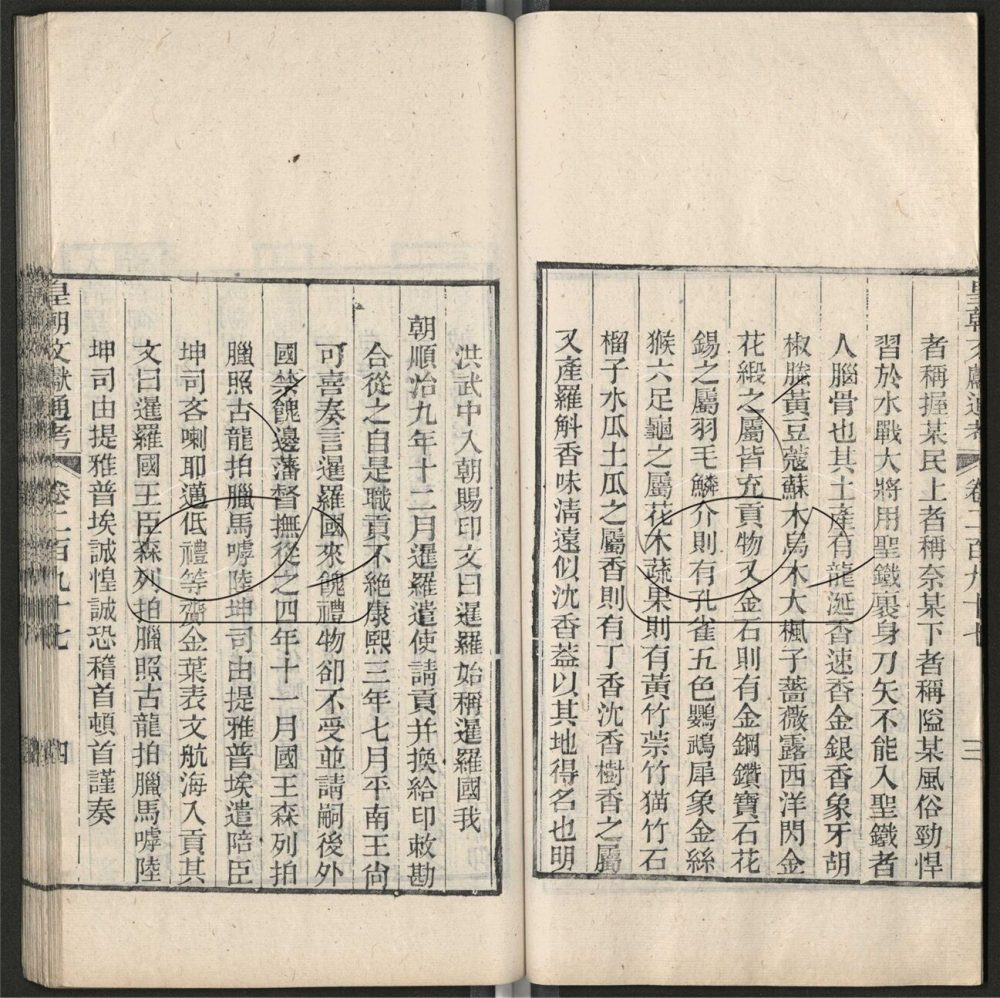 皇朝文獻通考 卷二百九十七 三
者稱握某民上者稱奈某下者稱隘某風俗勁悍
習於水戰大將用聖鐵裹身刀矢不能入聖鐵者
人腦骨也其土產有龍涎香速香金銀香象牙胡
椒螣黃豆蔻蘇木烏木大楓子薔薇露西洋閃金
花緞之屬皆充貢物又金石則有金鋼鑽寶石花
錫之屬羽毛鱗介則有孔雀五色鸚鵡犀象金絲
猴六足龜之屬花木蔬果則有黃竹菉竹猫竹石
榴子水瓜土瓜之屬香則有丁香沈香樹香之屬
又產羅斛香味淸遠似沈香蓋以其地得名也明
洪武中入朝賜印文曰暹羅始稱暹羅國我
朝順治九年十二月暹羅遣使請貢并換給印敕勘
合從之自是職貢不絶康熙三年七月平南王尙
可喜奏言暹羅國來餽禮物卻不受並請嗣後外
國禁餽邊藩督撫從之四年十一月國王森列拍
臘照古龍拍臘馬嘑陸坤司由提雅普埃遣陪臣
坤司吝喇耶邁低禮等齎金葉表文航海入貢其
文曰暹羅國王臣森列拍臘照古龍拍臘馬嘑陸
坤司由提雅普埃誠惶誠恐稽首頓首謹奏
皇朝文獻通考 卷二百九十七 四